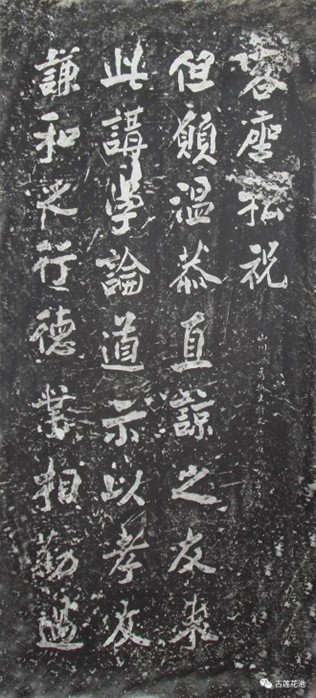 客座私祝
但願溫恭直諒之友来
此講學論道示以孝友
謙和之行德業相勸過
古莲花池